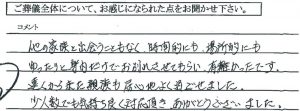 ご葬儀全体について、お感じになられた点をお聞かせ下さい。
コメント
他の家族と出会うこともなく時間的にも、場所的にも
ゆったりと身内だけでお別れさせてもらい有難かったです。
遠くから来た親族も居心地よく過ごせました。
少人数でも気持ち良く対応頂きありがとうございました。